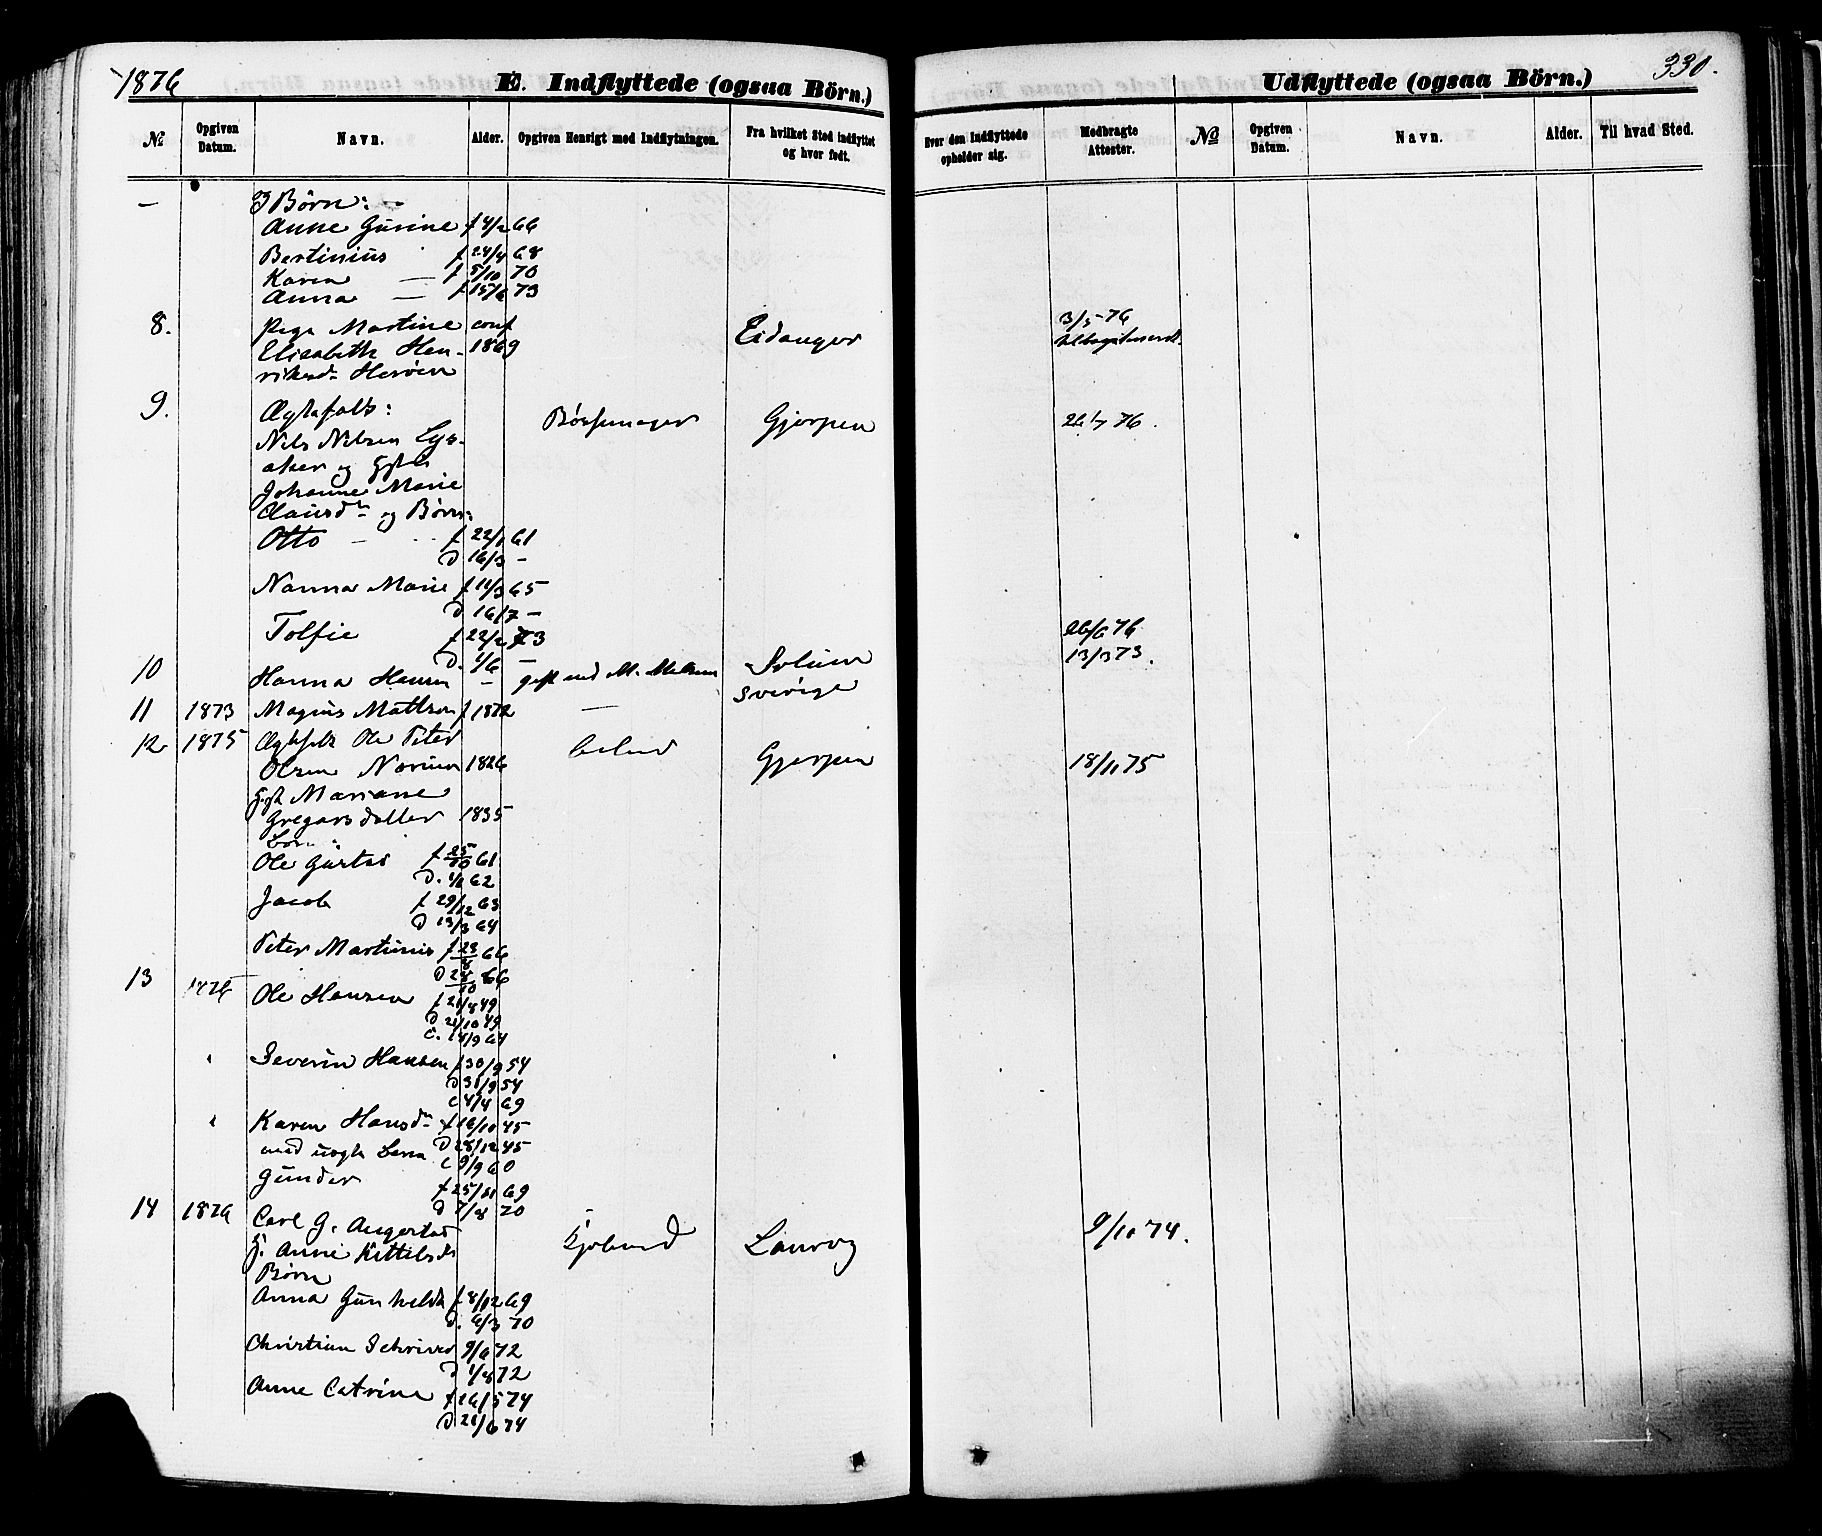 1876
E. Indflyttede (ogsaa Börn.)
Udflyttede (ogsaa Börn.)
330.
№
Opgiven Datum.
Navn.
Alder.
Opgiven Hensigt med Indflytningen.
Fra hvilket Sted indflyttet og hvor født.
Hvor den Indflyttede opholder sig.
Medbragte Attester.
№
Opgiven Datum.
Navn.
Alder.
Til hvad Sted.
— Børn:
Anne Gurine f 4/2 66
Bertinius f 24/4 68
Karen — f 5/10 70
Anna — f 15/6 73
8. Pige Martine conf Eidanger 3/5 76
Elisabeth Hen- 1869
riksd. Herøen
9. Ægtefolk: Gjerpen 26/7 76.
Nils Nilsen
aker og
Johanne Marie
Clausd. og Børn:
Otto — f 22/1 61
d 16/3 —
Nanna Marie f 11/3 65
d 16/7 —
f 22/2 73 26/6 76
d. 1/6 — 13/3 73.
10 Hanna Hansen — gift med M. Solum
11 1873 Magnus Mattson f 1872 — Sverige
12 1875 Ægtefolk Ole Peter
Olsen 1826 Gjerpen 18/11 75
Mariane
Gregarsdatter 1835
Børn:
Ole f 25/10 61
d. 1/1 62
Jacob f 29/12 63
d 13/3 64
Peter Martinius f 23/8 66
d 28/10 66
13 1876 Ole Hansen f 21/8 49
d 21/10 49
c. 14/9 64
" Severin Hansen f 30/9 54
d 31/9 54
c 4/4 69
" Karen Hansdr f 16/10 45
med uægte Barn d 28/12 45
c 9/9 60
Gunder f 25/11 69
d 7/8 70
14 1876 Carl G. Angertad Laurvig 9/10 74.
g. Anne Kittilsdr
Børn
Anna Gunhilda f 8/12 69
d. 6/3 70
Christian Schriver 9/6 72
d 1/8 72
Anne Catrine f 16/5 74
d 21/6 74